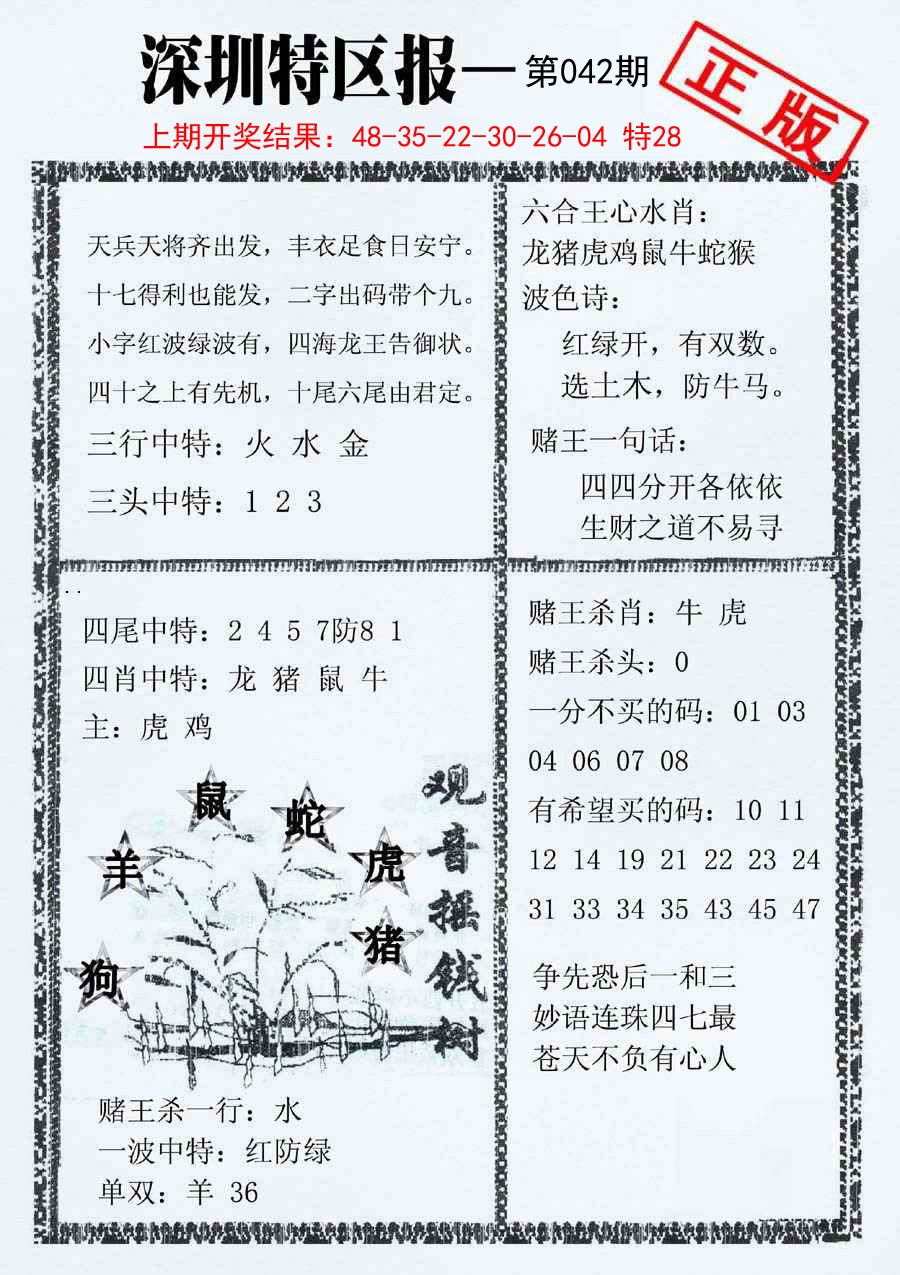 深圳特区报—第042期
正版
上期开奖结果：48-35-22-30-26-04 特28
天兵天将齐出发，丰衣足食日安宁。
十七得利也能发，二字出码带个九。
小字红波绿波有，四海龙王告御状。
四十之上有先机，十尾六尾由君定。
三行中特：火 水 金
三头中特：1 2 3
六合王心水肖：
龙猪虎鸡鼠牛蛇猴
波色诗：
红绿开，有双数。
选土木，防牛马。
赌王一句话：
四四分开各依依
生财之道不易寻
四尾中特：2 4 5 7防8 1
四肖中特：龙 猪 鼠 牛
主：虎 鸡
鼠
蛇
羊
虎
猪
狗
观音摇钱树
赌王杀一行：水
一波中特：红防绿
单双：羊 36
赌王杀肖：牛 虎
赌王杀头：0
一分不买的码：01 03
04 06 07 08
有希望买的码：10 11
12 14 19 21 22 23 24
31 33 34 35 43 45 47
争先恐后一和三
妙语连珠四七最
苍天不负有心人